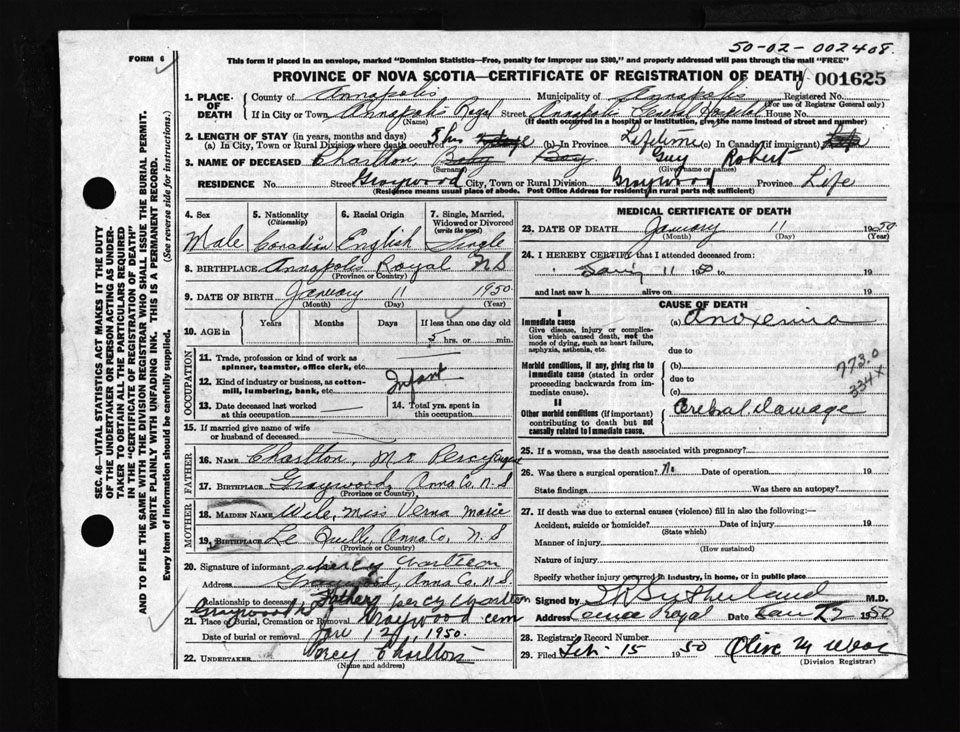 50-02-002408.
FORM 6
This form if placed in an envelope, marked "Dominion Statistics—Free, penalty for improper use $300," and properly addressed will pass through the mail "FREE"
PROVINCE OF NOVA SCOTIA—CERTIFICATE OF REGISTRATION OF DEATH 001625
SEC. 46—VITAL STATISTICS ACT MAKES IT THE DUTY
OF THE UNDERTAKER OR PERSON ACTING AS UNDER-
TAKER TO OBTAIN ALL THE PARTICULARS REQUIRED
IN THE "CERTIFICATE OF REGISTRATION OF DEATH"
AND TO FILE THE SAME WITH THE DIVISION REGISTRAR WHO SHALL ISSUE THE BURIAL PERMIT.
WRITE PLAINLY WITH UNFADING INK. THIS IS A PERMANENT RECORD.
Every item of information should be carefully supplied. (See reverse side for instructions.)
1. PLACE OF DEATH County of Annapolis Municipality of Annapolis Registered No.
(For use of Registrar General only)
If in City or Town Annapolis Royal Street Annapolis General Hospital House No.
(Name) (If death occurred in a hospital or institution, give the name instead of street and number)
2. LENGTH OF STAY (in years, months and days)
(a) In City, Town or Rural Division where death occurred 5 hrs (b) In Province Lifetime (c) In Canada (if immigrant)
3. NAME OF DECEASED Charlton, Baby Boy Guy Robert
(Surname) (Given name or names)
RESIDENCE No. Street Graywood City, Town or Rural Division Graywood Province Life
(Residence means usual place of abode. Post Office Address for residents in rural parts not sufficient)
4. Sex Male
5. Nationality (Citizenship) Canadian
6. Racial Origin English
7. Single, Married, Widowed or Divorced (write the word) Single
8. BIRTHPLACE Annapolis Royal N S
(Province or Country)
9. DATE OF BIRTH January 11 1950
(Month) (Day) (Year)
10. AGE in Years Months Days If less than one day old
5 hrs. or min.
OCCUPATION
11. Trade, profession or kind of work as
spinner, teamster, office clerk, etc.
12. Kind of industry or business, as cotton-
mill, lumbering, bank, etc. Infant
13. Date deceased last worked
at this occupation
14. Total yrs. spent in
this occupation
15. If married give name of wife
or husband of deceased
FATHER
16. NAME Charlton, Mr. Percy Eugene
17. BIRTHPLACE Graywood, Anna Co. N. S
(Province or Country)
MOTHER
18. MAIDEN NAME Wile, Miss Verna Marie
19. BIRTHPLACE Le Quille, Anna Co. N. S
(Province or Country)
20. Signature of informant Percy Charlton
Address Graywood, Anna Co. N. S.
Relationship to deceased Father Percy Charlton
21. Place of Burial, Cremation or Removal Graywood cem
Date of burial or removal Jan 12, 1950.
22. UNDERTAKER Percy Charlton
(Name and address)
MEDICAL CERTIFICATE OF DEATH
23. DATE OF DEATH January 11 1950
(Month) (Day) (Year)
24. I HEREBY CERTIFY that I attended deceased from:
11 1950 to 19
and last saw h alive on 19
CAUSE OF DEATH
I
Immediate cause (a) Anoxemia
Give disease, injury or complica-
tion which caused death, not the
mode of dying, such as heart failure,
asphyxia, asthenia, etc. due to
Morbid conditions, if any, giving rise to (b)
immediate cause (stated in order due to
proceeding backwards from im-
mediate cause). (c)
773.0
334X
II
Other morbid conditions (if important) Cerebral Damage
contributing to death but not
causally related to immediate cause.
25. If a woman, was the death associated with pregnancy?
26. Was there a surgical operation? No Date of operation 19
State findings Was there an autopsy?
27. If death was due to external causes (violence) fill in also the following:—
Accident, suicide or homicide? Date of injury 19
(State which)
Manner of injury
(How sustained)
Nature of injury
Specify whether injury occurred in industry, in home, or in public place
Signed by Sutherland M.D.
Address Anna Royal Date Jan 22 1950
28. Registrar's Record Number
29. Filed Feb 15 1950 Olive M
(Division Registrar)